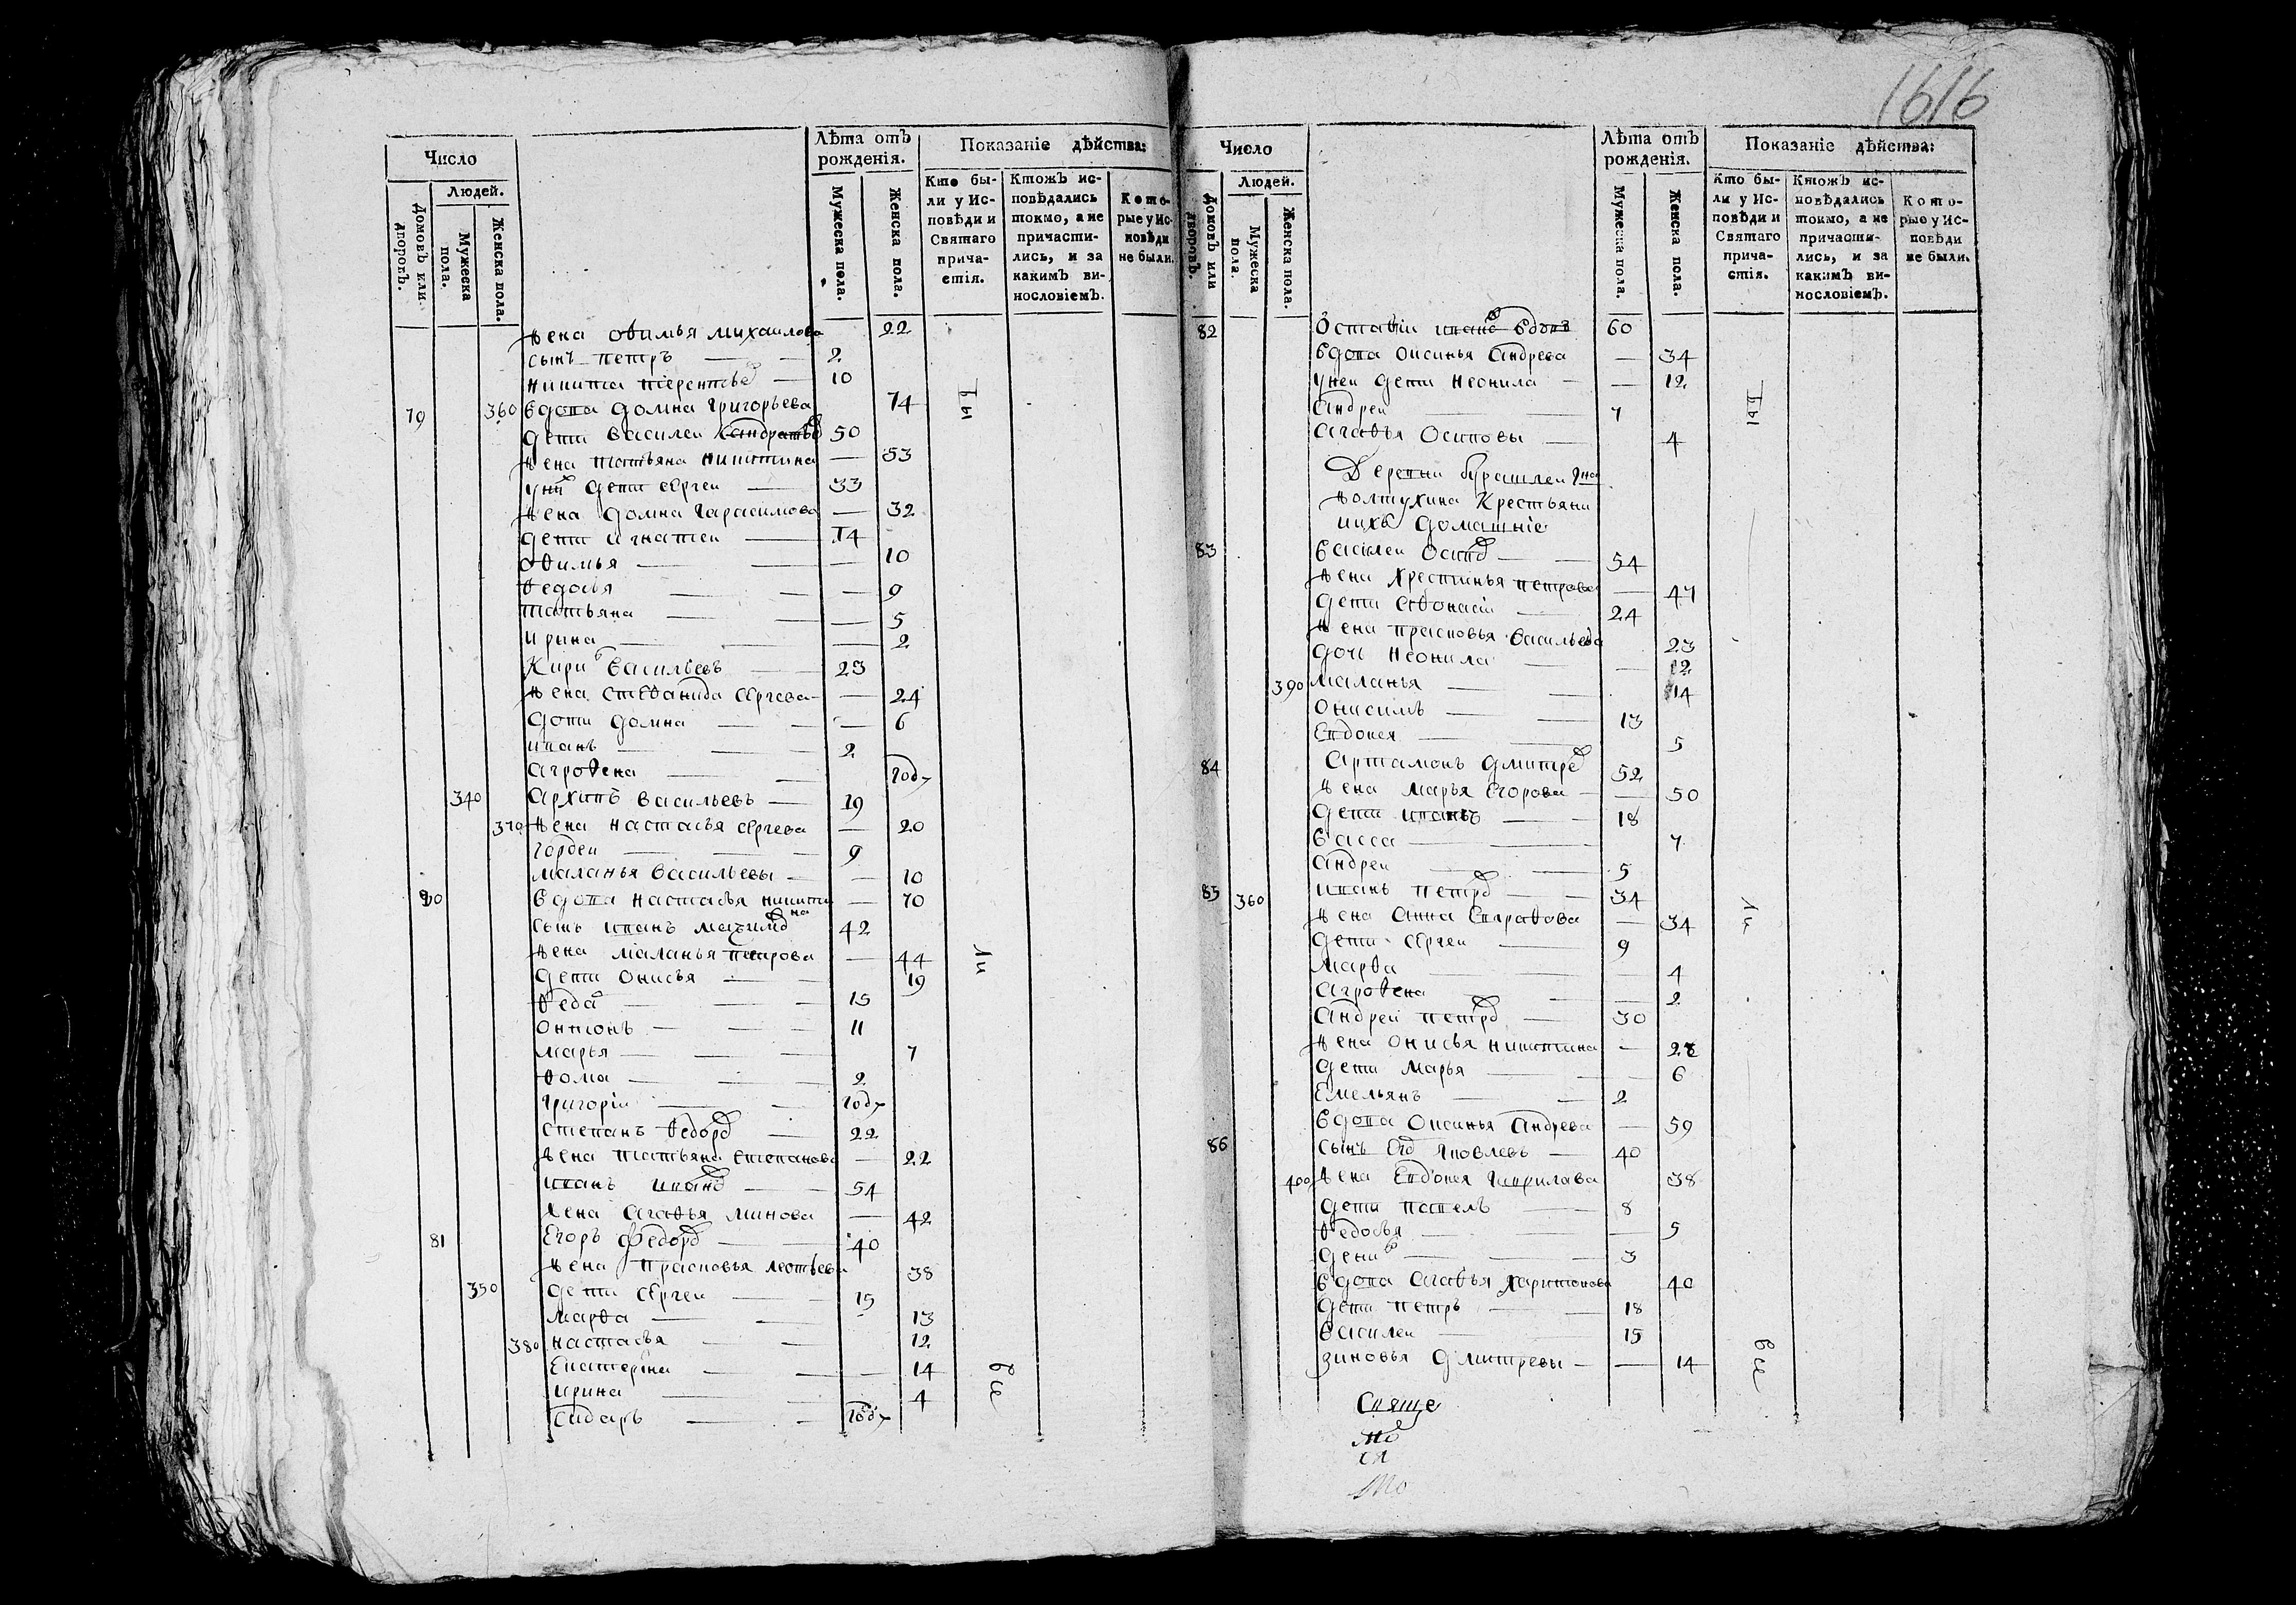 1616
Число
Людей.
Домовъ или дворовъ.
Мужеска пола.
Женска пола.
Лѣта отъ рожденія.
Мужеска пола.
Женска пола.
Показаніе дѣйства:
Кто бы-
ли у Ис-
повѣди и
Святаго
прича-
стія.
Ктожъ ис-
повѣдались
токмо, а не
причасти-
лись, и за
какимъ ви-
нословіемъ.
Кото-
рые у Ис-
повѣди
не были.
жена Офимья Михаилова 22
сынъ петръ 2
никита терентьев 10
79 360 вдова домна григорьева 74
дети василеи 50
жена татьяна никитина 53
у них дети сергеи 33
жена домна гарасимова 32
дети игнатеи 14
офимья 10
федосья 9
татьяна 5
ирина 2
Кирил васильевъ 23
жена стефанида сергева 24
дети домна 6
иванъ 2
агрофена году
340 Архипъ васильевъ 19
370 жена настасья сергева 20
гордеи 9
маланья васильевы 10
80 вдова настасья никитина 70
сынъ иванъ 42
жена маланья петрова 44
дети онисья 19
федор 15
онтонъ 11
марья 7
фома 2
григории году
степанъ федоров 22
жена татьяна степанова 22
иванъ иванов 54
жена агафья минова 42
81 Егоръ федоров 40
жена прасковья леонтьева 38
350 дети сергеи 15
марфа 13
380 настасья 12
Екатерина 14
ирина 4
сидоръ году
Число
Людей.
Домовъ или дворовъ.
Мужеска пола.
Женска пола.
Лѣта отъ рожденія.
Мужеска пола.
Женска пола.
Показаніе дѣйства:
Кто бы-
ли у Ис-
повѣди и
Святаго
прича-
стія.
Ктожъ ис-
повѣдались
токмо, а не
причасти-
лись, и за
какимъ ви-
нословіемъ.
Кото-
рые у Ис-
повѣди
не были.
82 иванов вдовъ 60
вдова оксинья андрева 34
у неи дети неонила 12
андреи 7
агафья Осиповы 4
Деревни
жолтухина Крестьяни
ихъ домашніе
83 василеи осипов 54
жена хрестинья петрова 47
дети афонасіи 24
жена прасковья васильева 23
дочь неонила 12
390 маланья 14
онисимъ 13
Евдокея 5
84 Артамонъ дмитрев 52
жена марья Егорова 50
дети иванъ 18
васса 7
андреи 5
85 360 иванъ петров 34
жена анна 34
дети сергеи 9
марфа 4
агрофена 2
андреи петров 30
жена онисья никитина
дети марья 6
Емельянъ 2
вдова оксинья андрева 59
86 сынъ яковлевъ 40
400 жена Евдокея гаврилова 38
дети павелъ 8
федосья 5
денис 3
вдова агафья харитонова 40
дети петръ 18
василеи 15
зиновья дмитревы 14
Свяще